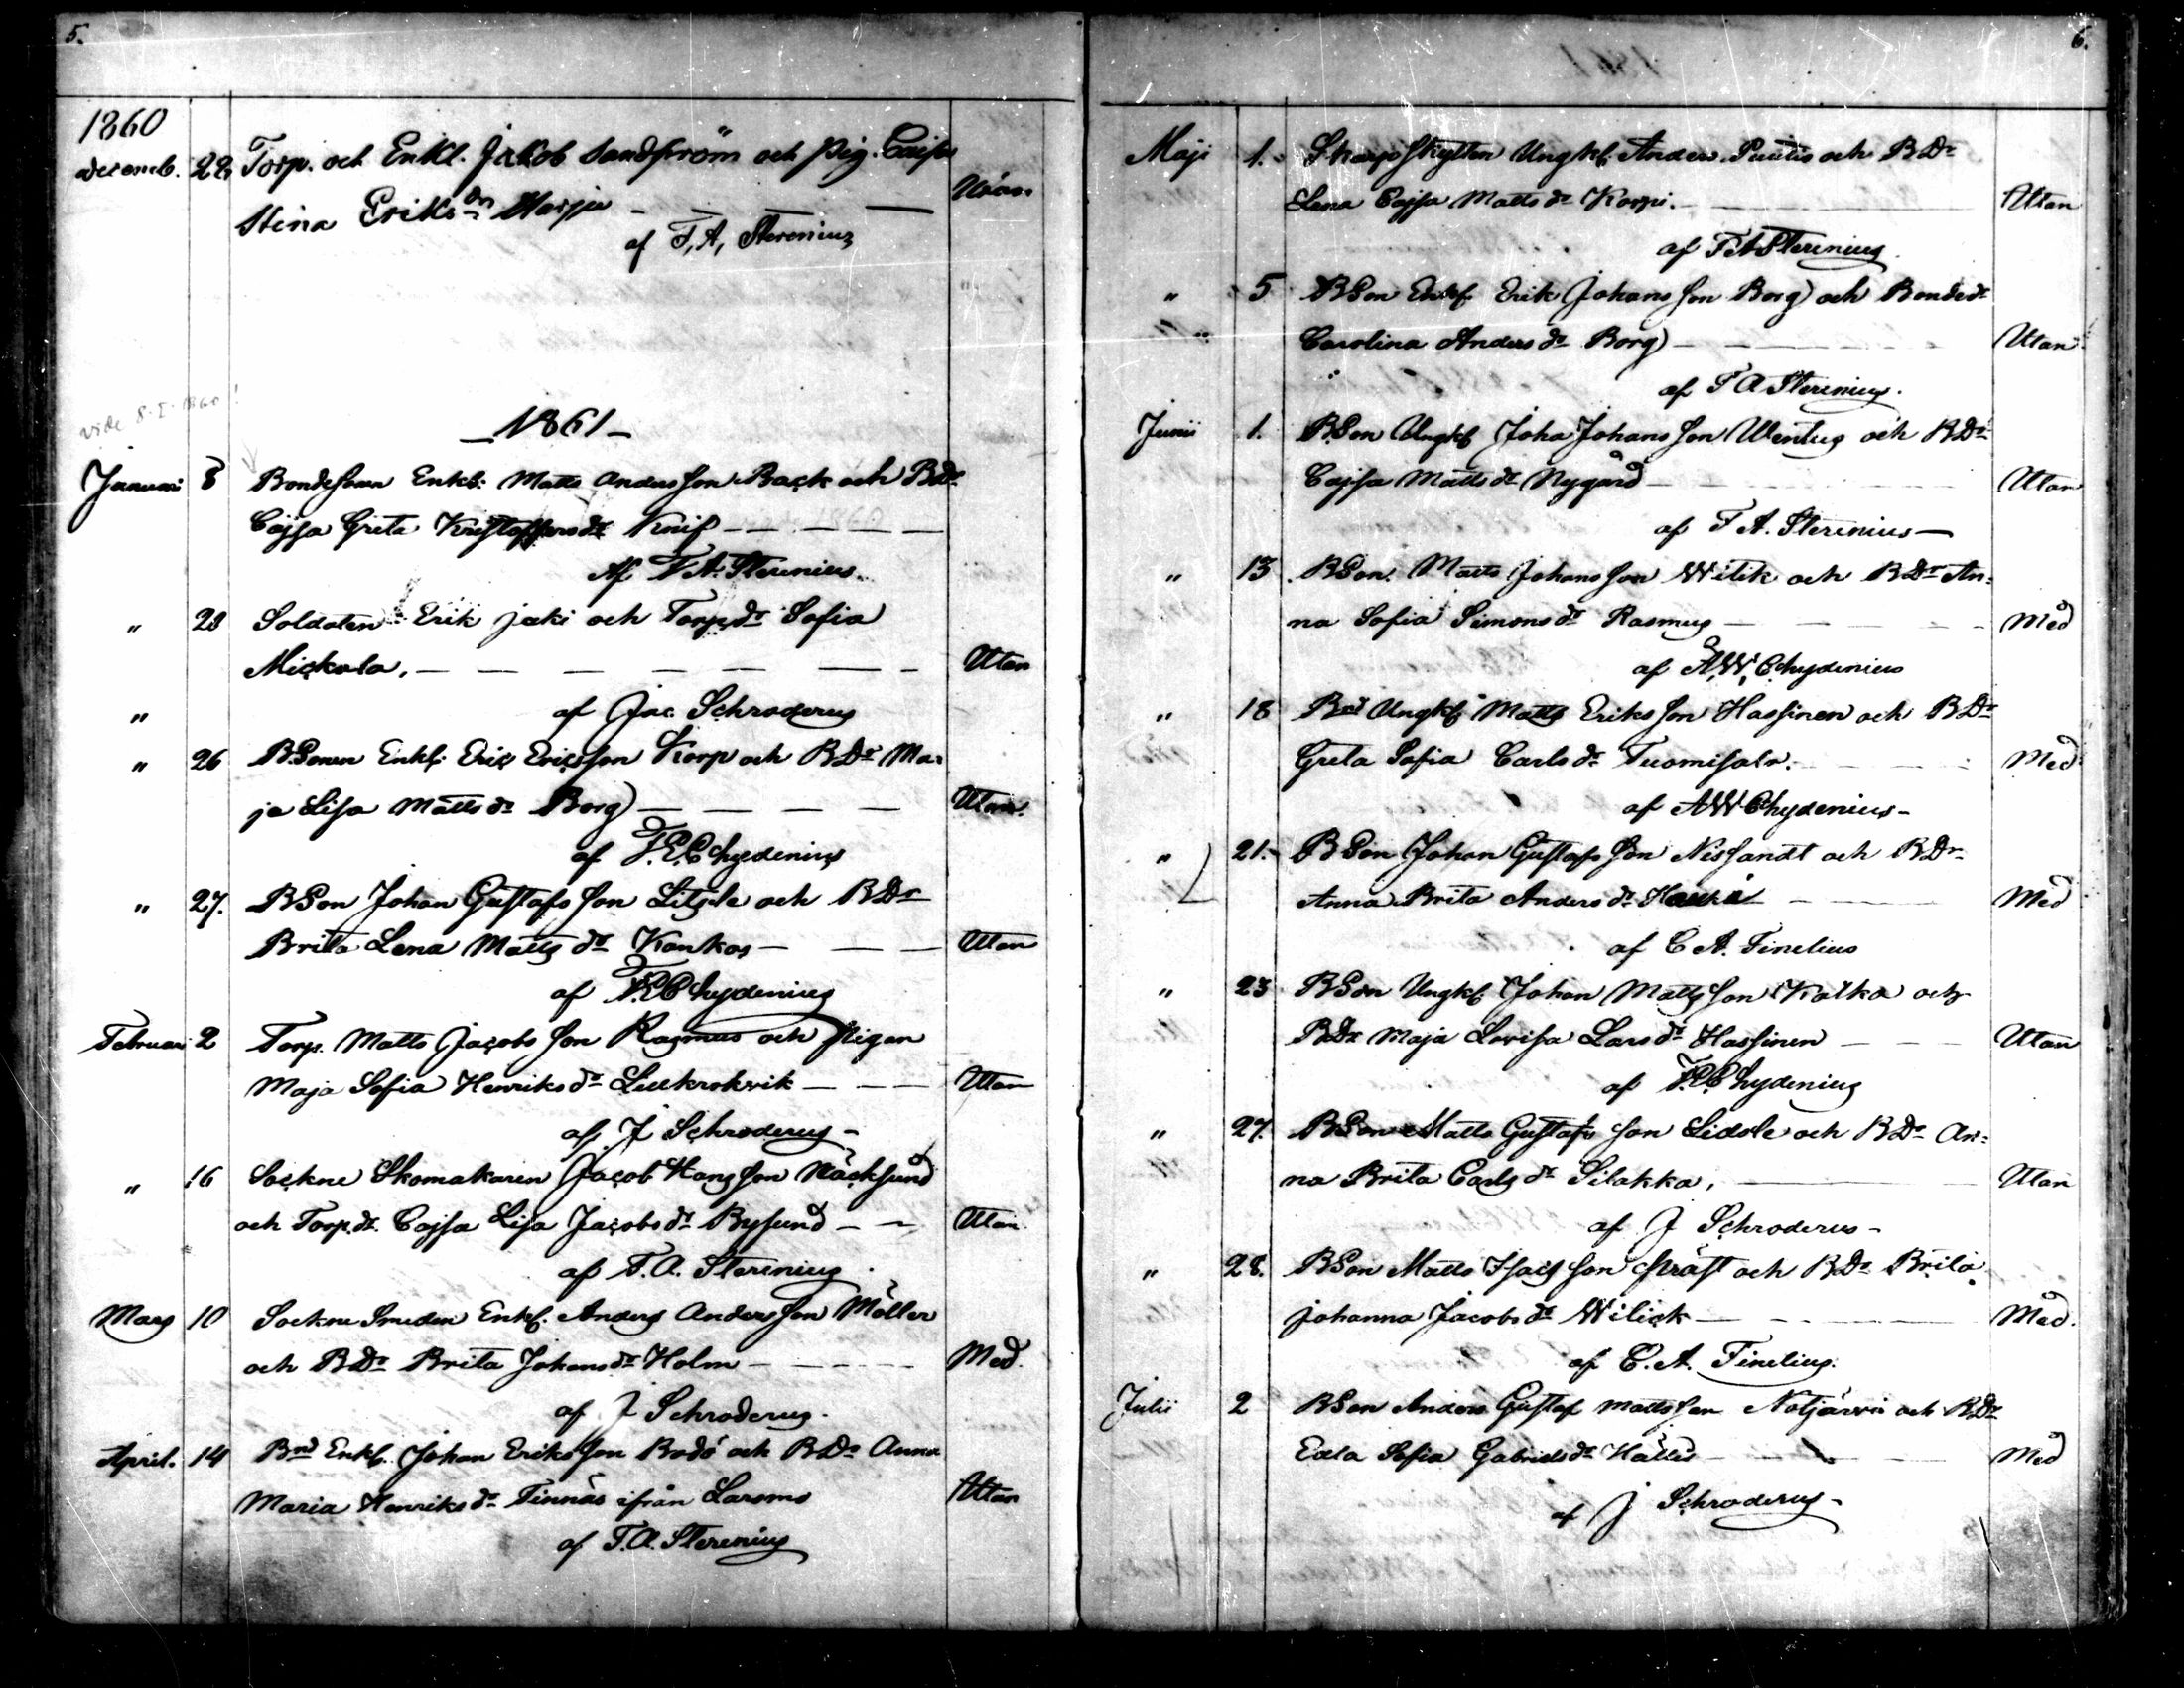 5.
1860
decemb. 22, Torp. och Enkl. Jakob Sandström och Pig. Caisa
Stina Eriksdr Harju — — — Utan
af F, A, Sterenius
vide 8.I.1860!
1861
Januari 8 Bondesonen Enkl: Matts Andersson Back och BDr
Cajsa Greta Kristoffersdr Knif — — — —
Af F. A. Sterenius.
" 20 Soldaten Erik Jaki och Torpdr Sofia
Mickola. — — — — — Utan
" af Jac Schroderus
" 26 BSonen Enkl. Eric Ericsson Korp och BDr Ma=
ja Lisa Mattsdr Borg — — — — Utan.
af F. E. Chydenius
" 27. BSon Johan Gustafsson Litsle och BDr
Brita Lena Mattsdr Kankas — — — Utan
af F. E. Chydenius
Februari 2 Torp. Matts Jacobsson Rasmus och Pigan
Maja Sofia Henriksdr Lillkrokvik — — — Utan
af J Schroderus —
" 16 Sockne Skomakaren Jacob Hansson Näcksund
och Torp.dr. Cajsa Lisa Jacobsdr Bysund — — Utan
af F. A. Sterenius.
Mars 10 Sockne Smeden Enkl. Anders Andersson Möller
och BDr Brita Johansdr Holm — — — — Med.
af J Schroderus.
April. 14 Bnd Enkl. Johan Eriksson Bodö och BDr Anna
Maria Henriksdr Finnäs ifrån Larsmo Utan
af F. A. Sterenius
6.
Maji 1. Skarpskytten Ungkl. Anders Puutio och BDr
Lena Cajsa Mattsdr Korpi. — Utan
af F A Sterenius
" 5 BSon Enkl. Erik Johansson Borg och Bondedr
Carolina Andersdr Borg — — — — Utan
af F A Sterenius.
Junii 1. BSon Ungkl Joha Johansson Wentus och BDr
Cajsa Mattsdr Nygård — — — — Utan
af F A. Sterenius —
" 13 BSon. Matts Johansson Witick och BDr An=
na Sofia Simonsdr Rasmus — — — — Med
af A, W, Chydenius
" 18 Bnd Ungkl Matts Eriksson Hassinen och BDr
Greta Sofia Carlsdr Tuomisalo. — — — Med
af A W Chydenius —
" 21. BSon Johan Gustafsson Nissandt och BDr
Anna Brita Andersdr — — — Med
af C A. Finelius
" 23 BSon Ungkl Johan Mattsson Kalka och
BDr Maja Lovisa Larsdr Hassinen — — — Utan
af F. E. Chydenius
" 27. BSon Matts Gustafsson Lidsle och BDr An=
na Brita Carlsdr Silakka, — Utan
af J Schroderus —
" 28. BSon Matts Isacsson Präst och BDr Brita
Johanna Jacobsdr Wilick — — — Med.
af C. A. Finelius.
Julii 2 BSon Anders Gustaf Mattsson Notjärvi och BDr
Edla Sofia Gabrielsdr Hällis — — — Med
af J Schroderus —